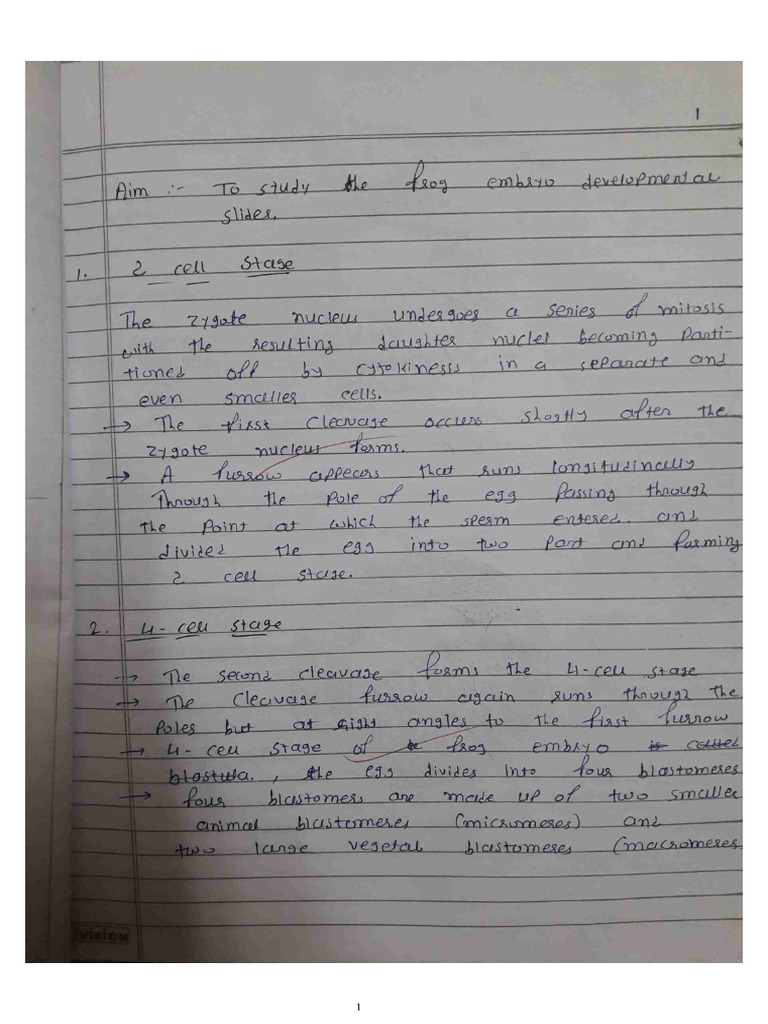 1
Aim :- To study the frog embryo developmental
slides.
1. 2 cell stage
The zygote nucleus undergoes a series of mitosis
with the resulting daughter nuclei becoming Parti-
tioned off by cytokinesis in a separate and
even smaller cells.
→ The first cleavage occurs shortly after the
zygote nucleus forms.
→ A furrow appears that runs longitudinally
Through the Pole of the egg Passing through
the Point at which the sperm entered. and
divided the egg into two Part and farming
2 cell stage.
2. 4-cell stage
→ The second cleavage forms the 4-cell stage
→ The cleavage furrow again runs through the
Poles but at right angles to the first furrow
→ 4-cell stage of frog embryo is called
blastula., the egg divides into four blastomeres
→ four blastomers are made up of two smaller
animal blastomeres (micromeres) and
two large vegetal blastomeres (macromeres
vision
1